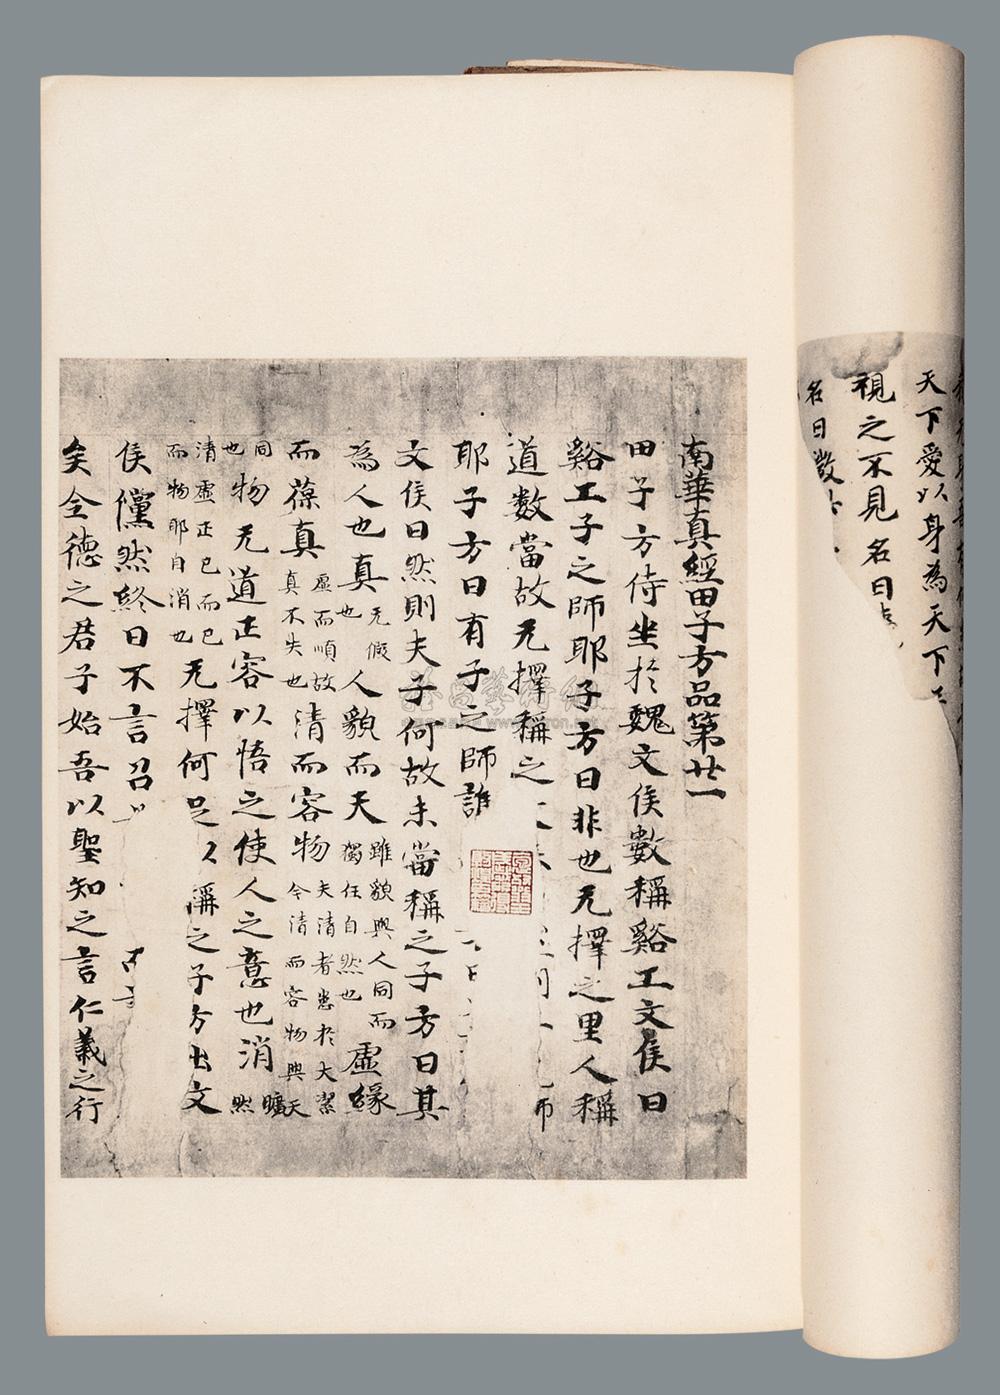 天下愛以身為天下
視之不見名曰
名曰微
南華真經田子方品第廿一
田子方侍坐於魏文侯數稱谿工文侯曰
谿工子之師耶子方曰非也无擇之里人稱
道數當故无擇稱之
師
耶子方曰有子之師誰
文侯曰然則夫子何故未當稱之子方曰其
為人也真无假也人貌而天雖貌與人同而獨任自然也虛緣
而葆真虛而順故真不失也清而容物夫清者患於大潔令清而容物與天
同也物无道正容以悟之使人之意也消曠然
清虛正已而已而物邪自消也无擇何足稱之子方出文
侯儻然終日不言召
矣全德之君子始吾以聖知之言仁義之行